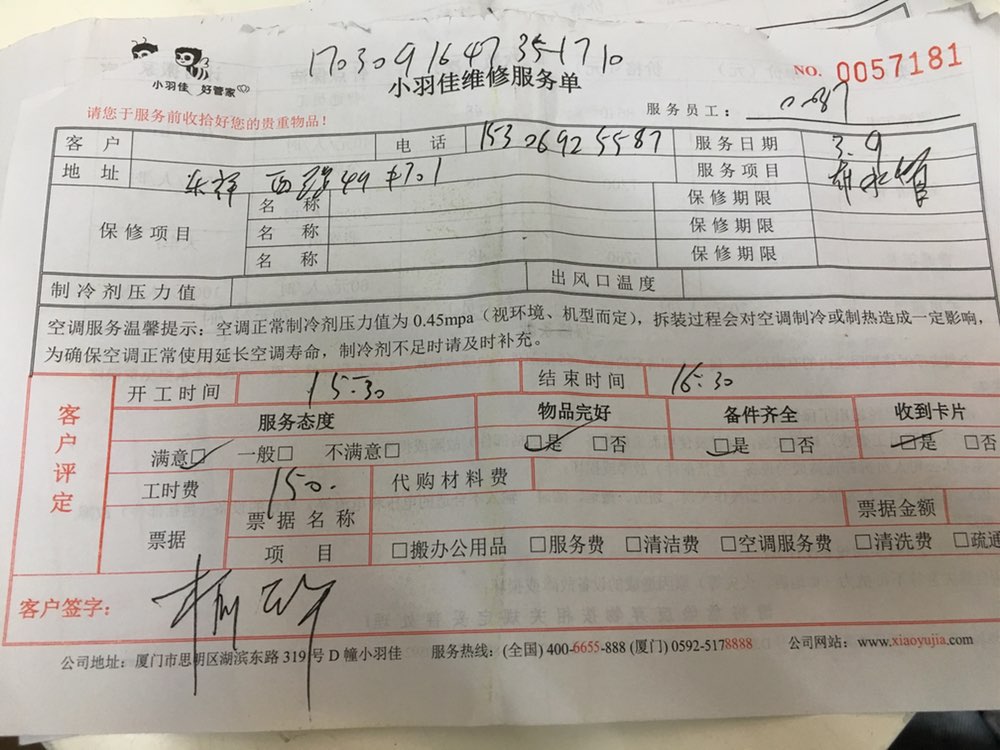 17030916473517 10
小羽佳 好管家
小羽佳维修服务单
NO. 0057181
请您于服务前收拾好您的贵重物品！
服务员工：
客 户 电 话 15306925587 服务日期 3.9
地 址 49 #701 服务项目
保修项目 名 称 保修期限
名 称 保修期限
名 称 保修期限
制冷剂压力值 出风口温度
空调服务温馨提示：空调正常制冷剂压力值为 0.45mpa（视环境、机型而定），拆装过程会对空调制冷或制热造成一定影响，
为确保空调正常使用延长空调寿命，制冷剂不足时请及时补充。
客户评定
开工时间 15:30 结束时间 16:30
服务态度 物品完好 备件齐全 收到卡片
满意□ 一般□ 不满意□ □是 □否 □是 □否 □是 □否
工时费 150. 代购材料费
票据 票据名称 票据金额
项 目 □搬办公用品 □服务费 □清洁费 □空调服务费 □清洗费 □疏通
客户签字：
公司地址：厦门市思明区湖滨东路 319 号 D 幢小羽佳 服务热线：(全国) 400-6655-888 (厦门) 0592-5178888 公司网站：www.xiaoyujia.com